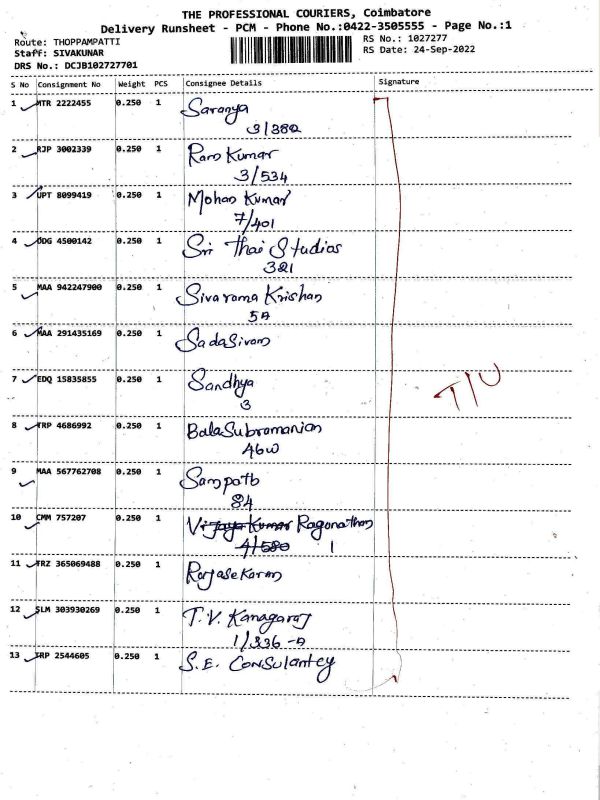 THE PROFESSIONAL COURIERS, Coimbatore
Delivery Runsheet - PCM - Phone No.:0422-3505555 - Page No.:1
Route: THOPPAMPATTI
RS No.: 1027277
Staff: SIVAKUNAR
RS Date: 24-Sep-2022
DRS No.: DCJB102727701
S No Consignment No Weight PCS Consignee Details Signature
1 MTR 2222455 0.250 1 Saranya
3/382
2 RJP 3002339 0.250 1 Ram Kumar
3/534
3 UPT 8099419 0.250 1 Mohan Kumar
7/401
4 ODG 4500142 0.250 1 Sri Thai Studios
321
5 MAA 942247900 0.250 1 Sivarama Krishan
5A
6 MAA 291435169 0.250 1 Sadasivam
7 EDQ 15835855 0.250 1 Sandhya
3
T/U
8 TRP 4686992 0.250 1 BalaSubramanian
46W
9 MAA 567762708 0.250 1 Sampath
84
10 CMM 757207 0.250 1 Vijaya Kumar Ragonathan
4/580 1
11 TRZ 365069488 0.250 1 Rajasekaran
12 SLM 303930269 0.250 1 T.V. Kanagaraj
1/336-A
13 TRP 2544605 0.250 1 S.E. Consulantcy